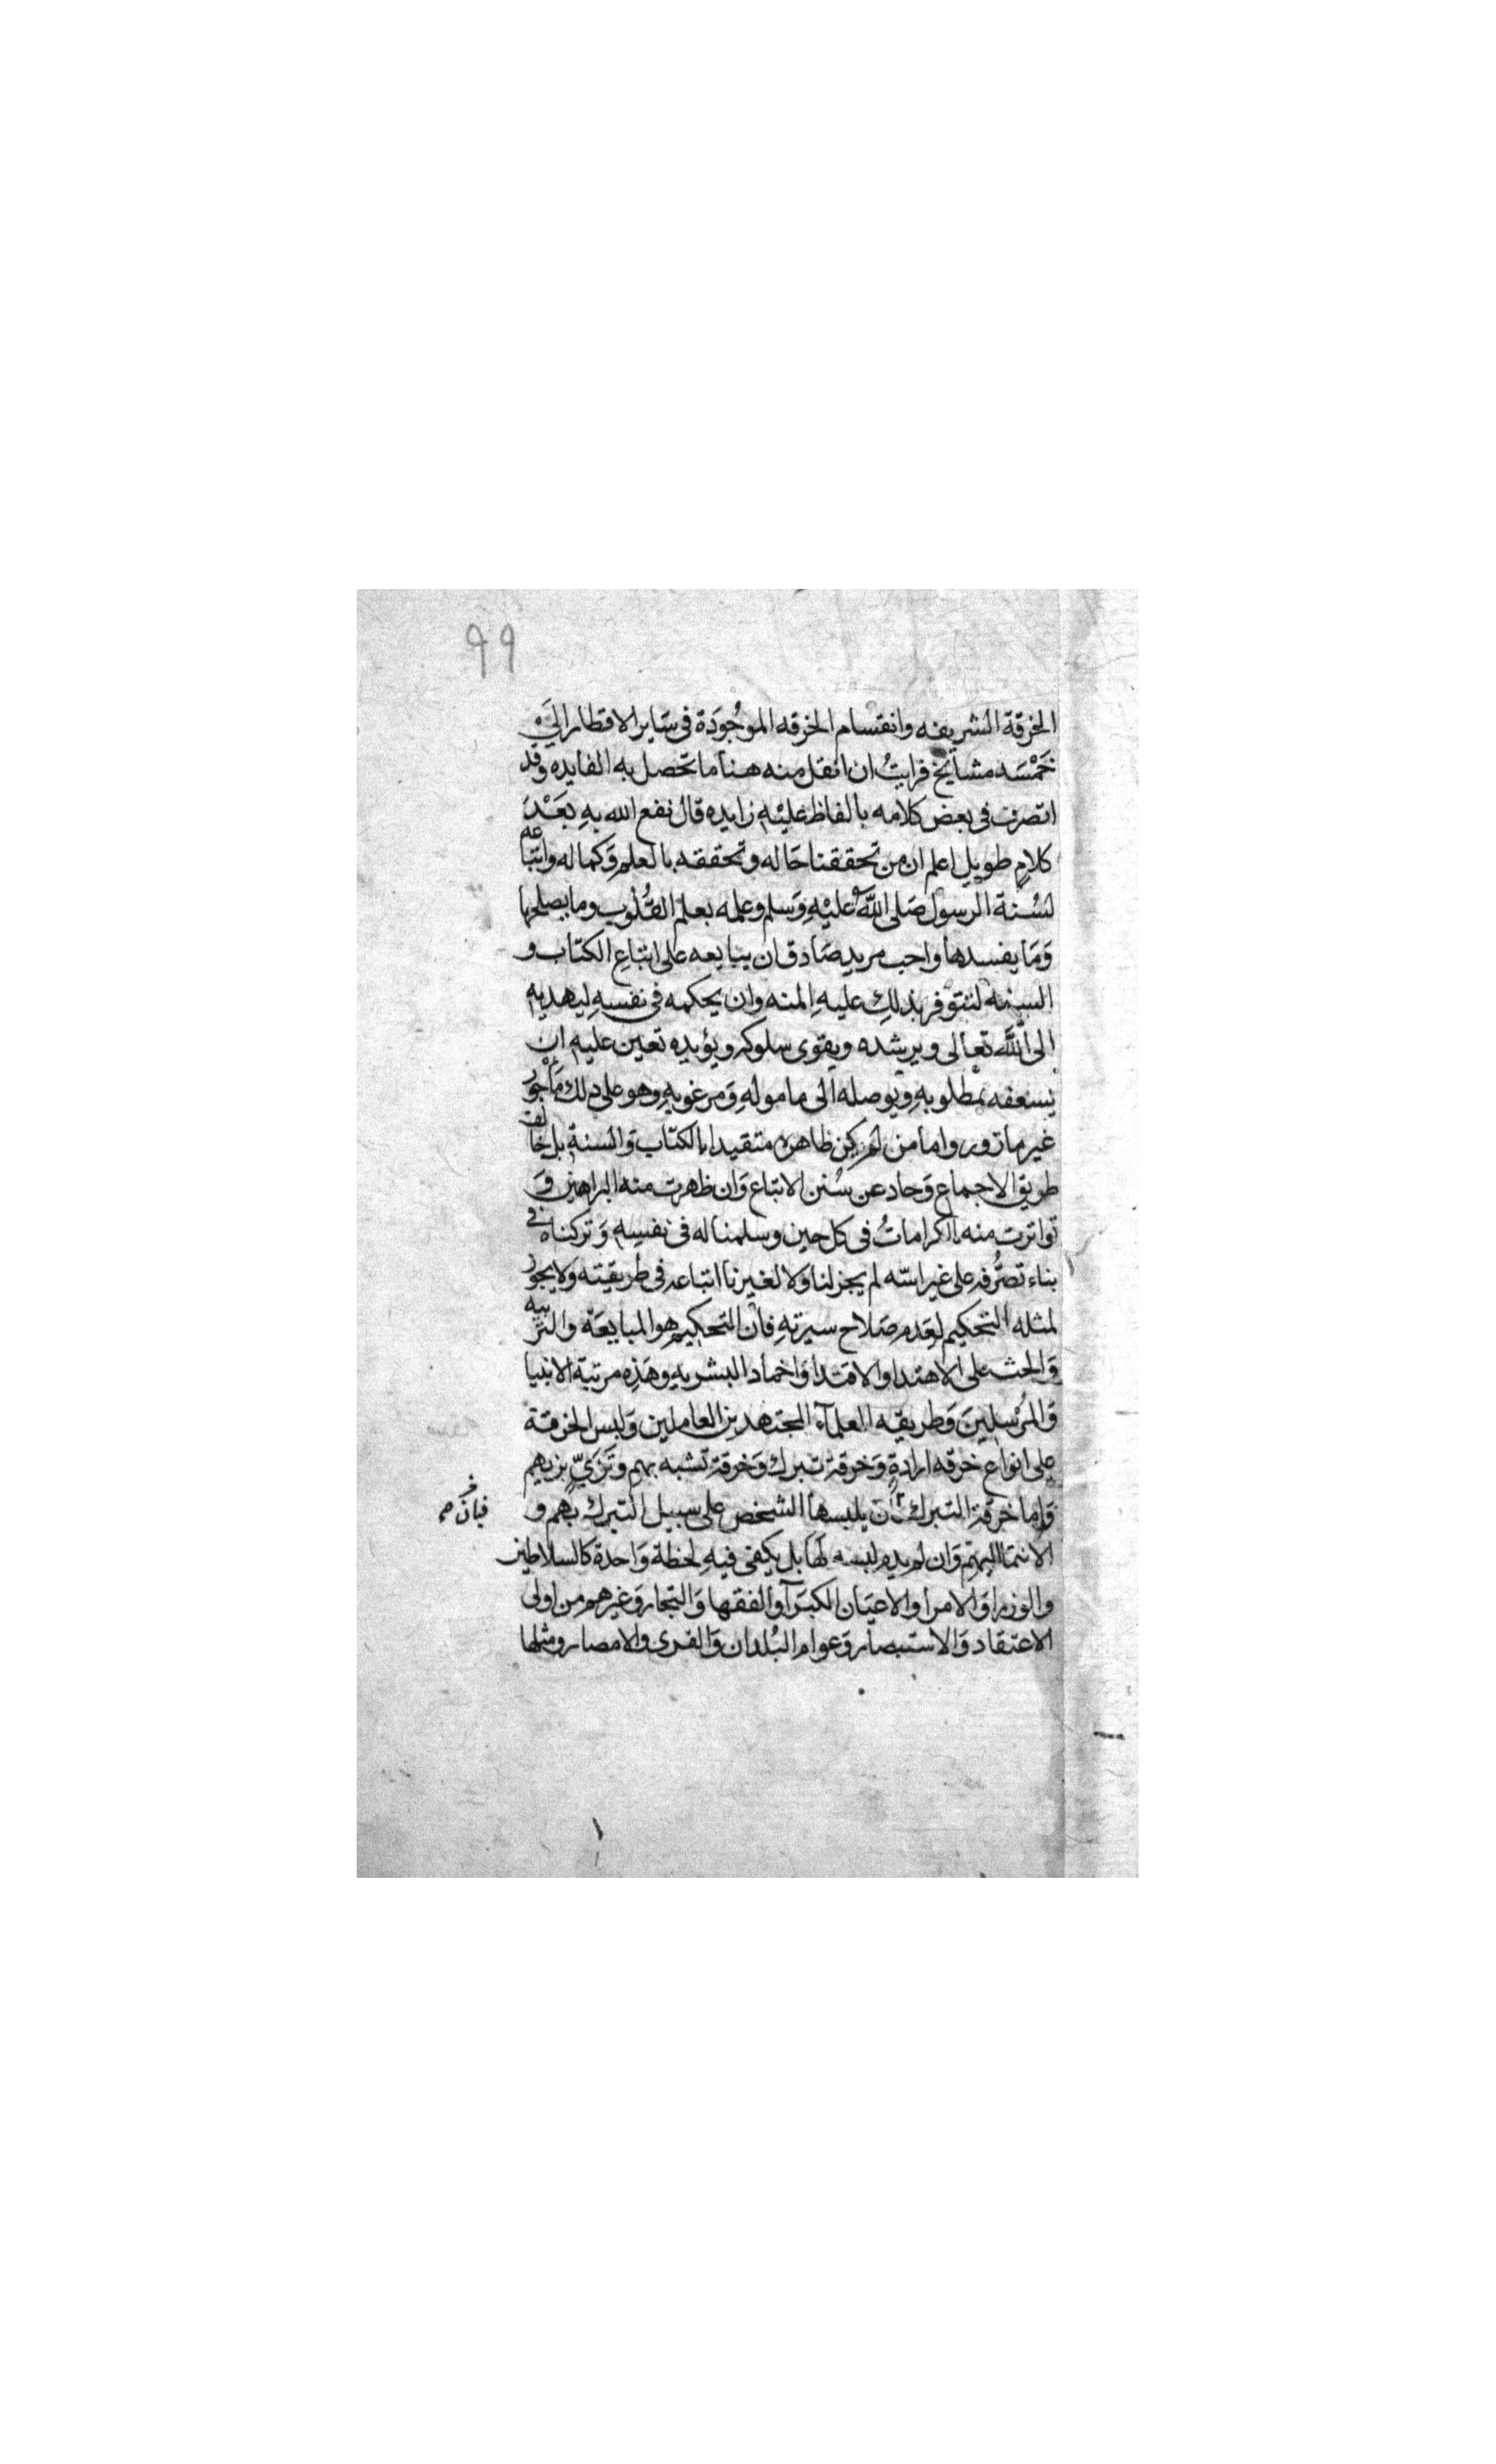 ٩٩
الخرقة الشريفه وانقسام الخرقه الموجُودَة فى سَاير الاقطار الَى
خَمْسَه مشايخ فرايتُ ان انقل منه هنا ما تحصل به الفايده وقد
اتصرف فى بعض كلامه بالفاظ عليْهِ زايده قال نفع الله بهِ بَعْدَ
كلامٍ طويل اعلم ان من تحققنا حَاله وتحققه بالعلم وَكماله واتباعه
لسُنة الرسول صَلى اللَّه عليْهِ وَسلم وعمله بعلم القُلُوب وما يصلحها
وَمَا يفسدها واحب مريد صَادق ان يبايعه على اتباعِ الكتاب و
السنه لتتوفر بذلكِ عليهِ المنه وان يحكمه فى نفسهِ ليهديه
الى اللَّه تعالى ويرشده ويقوى سلوكه ويؤيده تعين عليهِ ان
يسعفه بمطلوبهِ ويوصله الى مامولهِ وَمرغوبهِ وهو على ذلك مَاجور
غير مازور واما من لم يكن ظاهره متقيدا بالكتاب وَالسنة بل خالف
طريق الاجماع وَحاد عن سُنن الاتباع وَان ظهرت منه البراهين وَ
تواترت منه الكراماتُ فى كل حين وسلمنا له فى نفسهِ وَتركناه فى
بناء تصرُّفه على غير اسّه لم يجز لنا ولا لغيرنا اتباعه فى طريقته ولا يجوز
لمثله التحكيم لِعَدم صَلاح سيرتهِ فان التحكيم هو المبايعَة والتربيه
وَالحث على الاهتدا والاقتدا وَاخماد البشريه وهَذِه مرتبة الانبيا
وَالمُرْسلينَ وَطريقه العلمآء المجتهدين العاملين وَلبس الخرقة
على انواع خرقه ارادةٍ وَخرقة تبرك وَخرقة تشبه بهم وتَزَيّ بزيهم
وَاما خرقة التبرك ان يلبسها الشخص على سبيل التبرك بهم و
فبان
الانتما اليهم وَان لم يدم لبسه لَها بل يكفى فيهِ لحظة وَاحدة كالسلاطين
والوزرا وَالامرا والاعيَان الكبَرآ والفقها وَالتجار وَغيرهم من اولى
الاعتقاد وَالاستبصار وَعوام البُلدان وَالقرى والامصار ومثلها